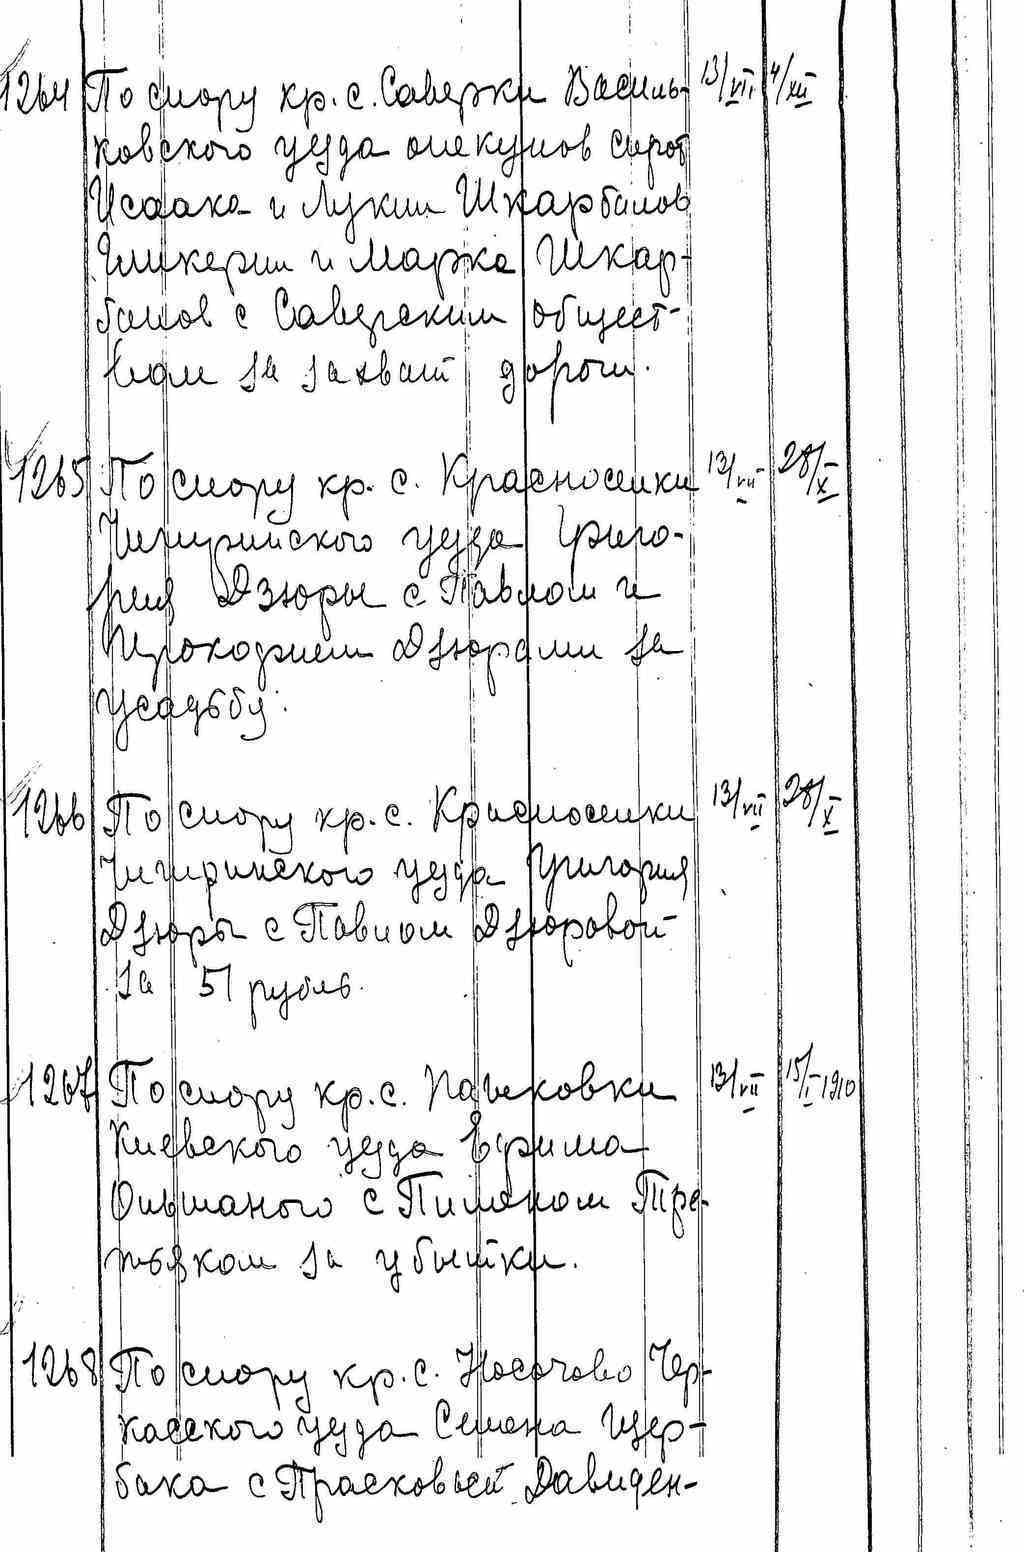 1264 По спору кр. с. Саверки Василь- 13/VII 4/XII
ковского уезда опекунов сирот
Исаака и Лукии Шкарбанов
Гликерии и Марка Шкар-
банов с Саверским общест-
вом за захват дороги.
1265 По спору кр. с. Красноселки 13/VII 28/X
Чигиринского уезда Григо-
рия Дзюры с Павлом и
Прокофием Дзюрами за
усадьбу.
1266 По спору кр. с. Красноселки 13/VII 28/X
Чигиринского уезда Григория
Дзюры с Павлом Дзюровой
за 51 рубль.
1267 По спору кр. с. Пашковки 13/VII 15/I-1910
Киевского уезда Ефима
Ольшаного с Пимоном Тре-
тьяком за убытки.
1268 По спору кр. с. Носачово Чер-
касского уезда Семена Щер-
бака с Прасковьей Давиден-